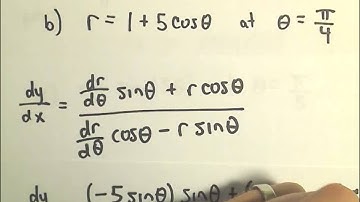 b) r = 1 + 5cosθ at θ = π/4
dy/dx = (dr/dθ sinθ + r cosθ)/(dr/dθ cosθ - r sinθ)
dy (-5sinθ) sinθ + (